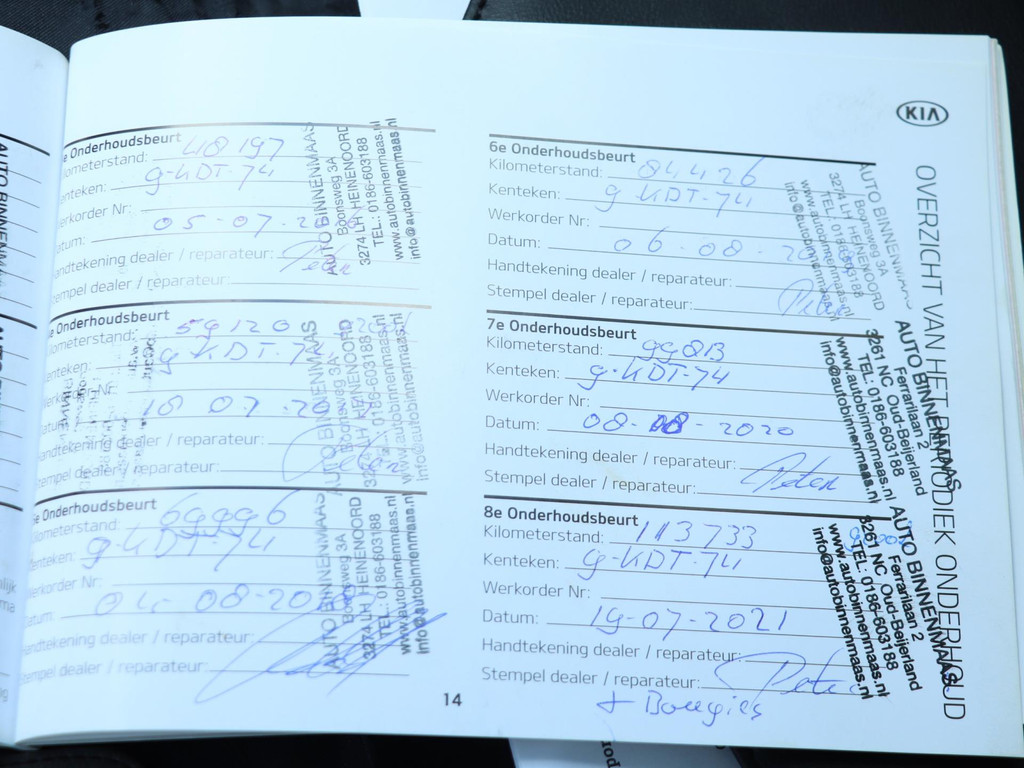 KIA
OVERZICHT VAN HET PERIODIEK ONDERHOUD
e Onderhoudsbeurt
ilometerstand: 48197
enteken: g-KDT-74
erkorder Nr:
atum: 05-07-20
andtekening dealer / reparateur:
tempel dealer / reparateur:
AUTO BINNENMAAS
Boonsweg 3A
3274 LH HEINENOORD
TEL.: 0186-603188
www.autobinnenmaas.nl
info@autobinnenmaas.nl
e Onderhoudsbeurt
ilometerstand: 59120
enteken: g-KDT-74
erkorder Nr:
atum: 18 07 20
andtekening dealer / reparateur:
tempel dealer / reparateur:
AUTO BINNENMAAS
Boonsweg 3A
3274 LH HEINENOORD
TEL.: 0186-603188
www.autobinnenmaas.nl
info@autobinnenmaas.nl
e Onderhoudsbeurt
ilometerstand: 69996
enteken: g-KDT-74
erkorder Nr:
atum: 08-20
andtekening dealer / reparateur:
tempel dealer / reparateur:
AUTO BINNENMAAS
Boonsweg 3A
3274 LH HEINENOORD
TEL.: 0186-603188
www.autobinnenmaas.nl
info@autobinnenmaas.nl
6e Onderhoudsbeurt
Kilometerstand: 84426
Kenteken: g-KDT-74
Werkorder Nr:
Datum: 06-08-20
Handtekening dealer / reparateur:
Stempel dealer / reparateur:
AUTO BINNENMAAS
Boonsweg 3A
3274 LH HEINENOORD
TEL.: 0186-603188
www.autobinnenmaas.nl
info@autobinnenmaas.nl
7e Onderhoudsbeurt
Kilometerstand:
Kenteken: g-KDT-74
Werkorder Nr:
Datum: 08-08-2020
Handtekening dealer / reparateur:
Stempel dealer / reparateur: Peter
AUTO BINNENMAAS
Ferrarilaan 2
3261 NC Oud-Beijerland
TEL.: 0186-603188
www.autobinnenmaas.nl
info@autobinnenmaas.nl
8e Onderhoudsbeurt
Kilometerstand: 113733
Kenteken: g-KDT-74
Werkorder Nr:
Datum: 19-07-2021
Handtekening dealer / reparateur:
Stempel dealer / reparateur: Peter
+ Bougies
AUTO BINNENMAAS
Ferrarilaan 2
3261 NC Oud-Beijerland
TEL.: 0186-603188
www.autobinnenmaas.nl
info@autobinnenmaas.nl
14
AUTO BINNENM